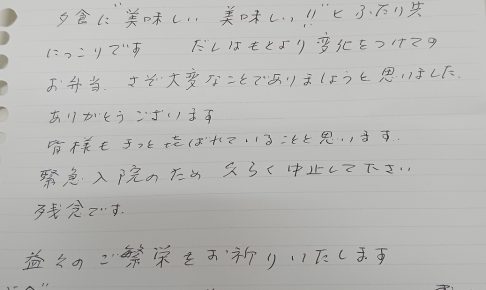 夕食に"美味しい 美味しい!!"と ふたり共
にっこりです だしはもとより変化をつけての
お弁当、さぞ大変なことでありましょうと思いました。
ありがとうございます
皆様もきっと喜ばれていることと思います。
緊急入院のため 久らく中止して下さい
残念です。
益々のご繁栄をお祈りいたします